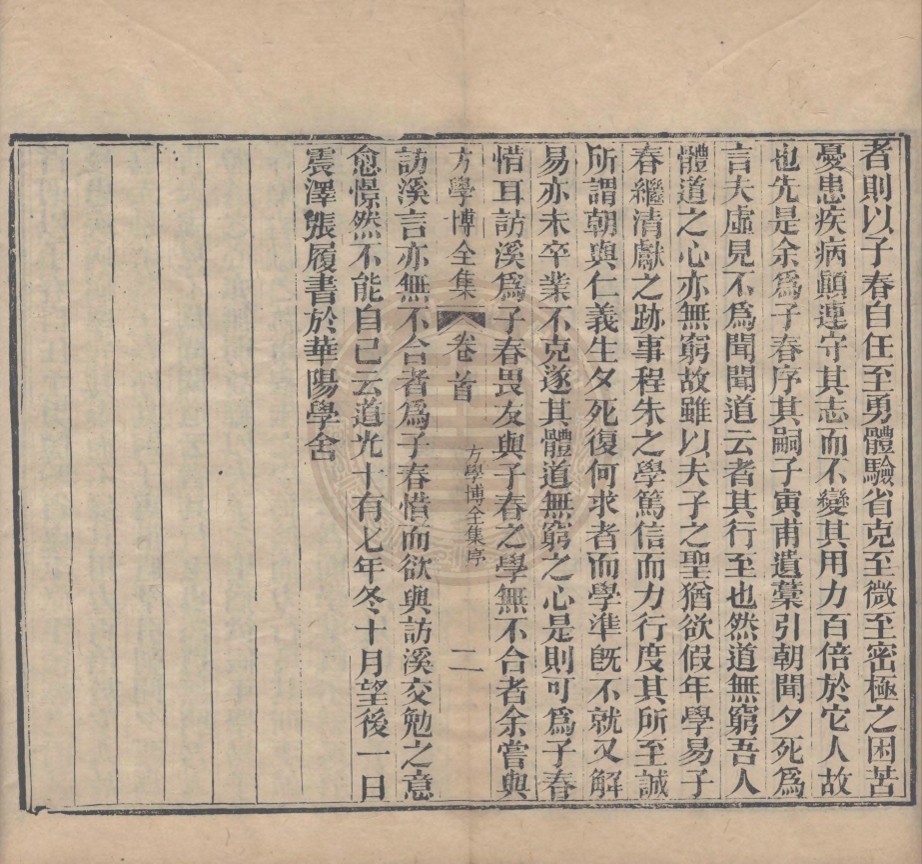 者則以子春自任至勇體驗省克至微至密極之困苦
憂患疾病顚連守其志而不變其用力百倍於它人故
也先是余爲子春序其嗣子寅甫遺藁引朝聞夕死爲
言夫虛見不爲聞聞道云者其行至也然道無窮吾人
體道之心亦無窮故雖以夫子之聖猶欲假年學易子
春繼清獻之跡事程朱之學篤信而力行度其所至誠
所謂朝與仁義生夕死復何求者而學準旣不就又解
易亦未卒業不克遂其體道無窮之心是則可爲子春
惜耳訪溪爲子春畏友與子春之學無不合者余嘗與
方學博全集 卷首 方學博全集序 二
訪溪言亦無不合者爲子春惜而欲與訪溪交勉之意
愈憬然不能自已云道光十有七年冬十月望後一日
震澤張履書於華陽學舍